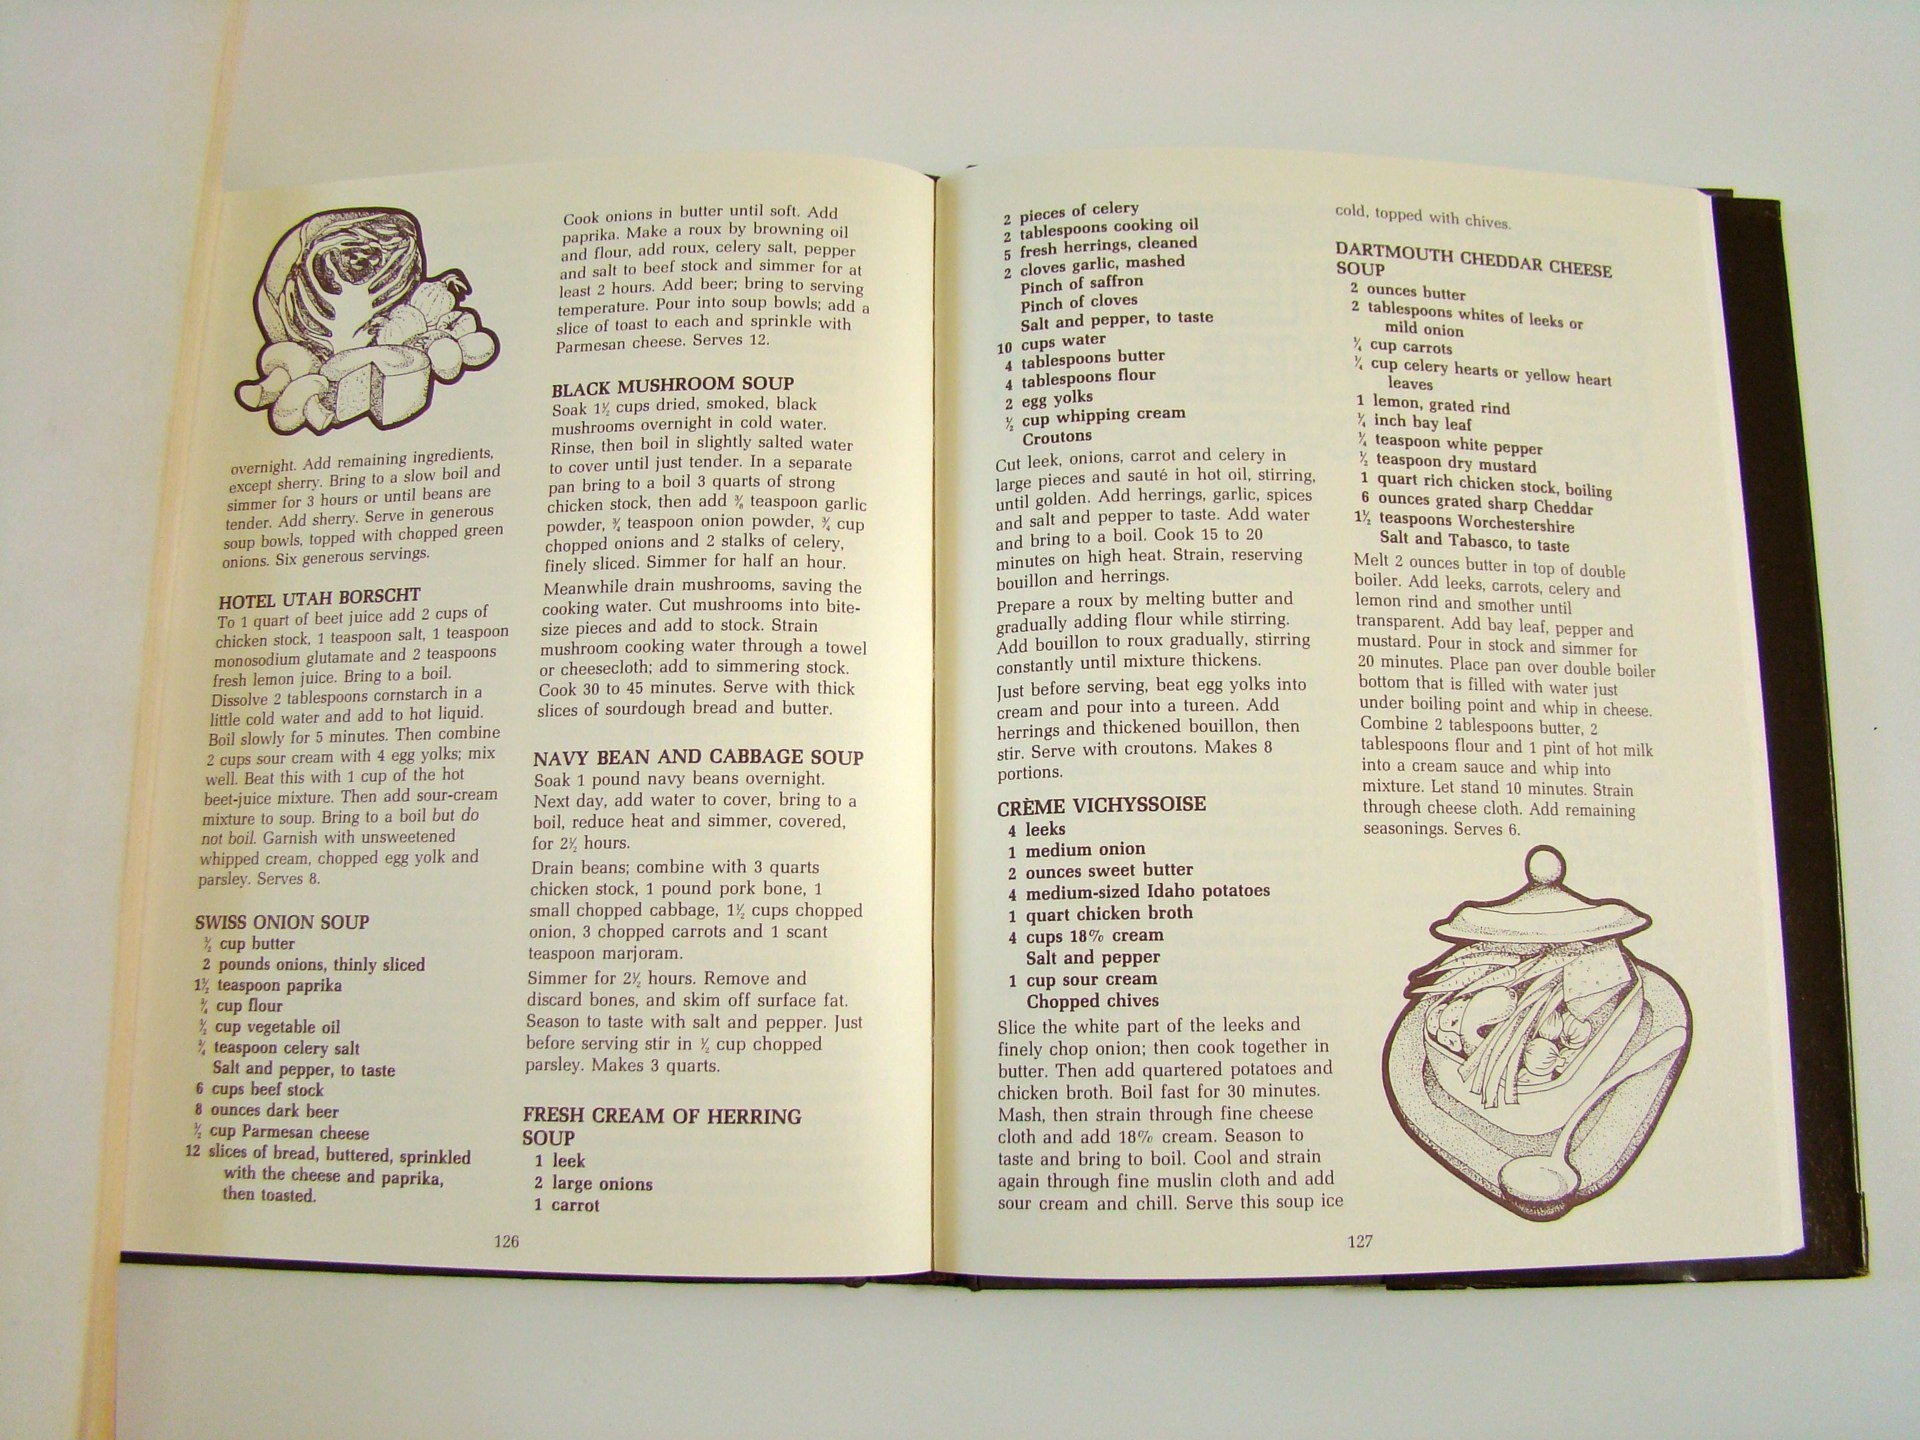 overnight. Add remaining ingredients,
except sherry. Bring to a slow boil and
simmer for 3 hours or until beans are
tender. Add sherry. Serve in generous
soup bowls, topped with chopped green
onions. Six generous servings.
HOTEL UTAH BORSCHT
To 1 quart of beet juice add 2 cups of
chicken stock, 1 teaspoon salt, 1 teaspoon
monosodium glutamate and 2 teaspoons
fresh lemon juice. Bring to a boil.
Dissolve 2 tablespoons cornstarch in a
little cold water and add to hot liquid.
Boil slowly for 5 minutes. Then combine
2 cups sour cream with 4 egg yolks; mix
well. Beat this with 1 cup of the hot
beet-juice mixture. Then add sour-cream
mixture to soup. Bring to a boil but do
not boil. Garnish with unsweetened
whipped cream, chopped egg yolk and
parsley. Serves 8.
SWISS ONION SOUP
½ cup butter
2 pounds onions, thinly sliced
1½ teaspoon paprika
¾ cup flour
½ cup vegetable oil
¾ teaspoon celery salt
Salt and pepper, to taste
6 cups beef stock
8 ounces dark beer
½ cup Parmesan cheese
12 slices of bread, buttered, sprinkled
with the cheese and paprika,
then toasted.
Cook onions in butter until soft. Add
paprika. Make a roux by browning oil
and flour, add roux, celery salt, pepper
and salt to beef stock and simmer for at
least 2 hours. Add beer; bring to serving
temperature. Pour into soup bowls; add a
slice of toast to each and sprinkle with
Parmesan cheese. Serves 12.
BLACK MUSHROOM SOUP
Soak 1½ cups dried, smoked, black
mushrooms overnight in cold water.
Rinse, then boil in slightly salted water
to cover until just tender. In a separate
pan bring to a boil 3 quarts of strong
chicken stock, then add ⅜ teaspoon garlic
powder, ¾ teaspoon onion powder, ¾ cup
chopped onions and 2 stalks of celery,
finely sliced. Simmer for half an hour.
Meanwhile drain mushrooms, saving the
cooking water. Cut mushrooms into bite-
size pieces and add to stock. Strain
mushroom cooking water through a towel
or cheesecloth; add to simmering stock.
Cook 30 to 45 minutes. Serve with thick
slices of sourdough bread and butter.
NAVY BEAN AND CABBAGE SOUP
Soak 1 pound navy beans overnight.
Next day, add water to cover, bring to a
boil, reduce heat and simmer, covered,
for 2½ hours.
Drain beans; combine with 3 quarts
chicken stock, 1 pound pork bone, 1
small chopped cabbage, 1½ cups chopped
onion, 3 chopped carrots and 1 scant
teaspoon marjoram.
Simmer for 2½ hours. Remove and
discard bones, and skim off surface fat.
Season to taste with salt and pepper. Just
before serving stir in ½ cup chopped
parsley. Makes 3 quarts.
FRESH CREAM OF HERRING
SOUP
1 leek
2 large onions
1 carrot
126
2 pieces of celery
2 tablespoons cooking oil
5 fresh herrings, cleaned
2 cloves garlic, mashed
Pinch of saffron
Pinch of cloves
Salt and pepper, to taste
10 cups water
4 tablespoons butter
4 tablespoons flour
2 egg yolks
½ cup whipping cream
Croutons
Cut leek, onions, carrot and celery in
large pieces and sauté in hot oil, stirring,
until golden. Add herrings, garlic, spices
and salt and pepper to taste. Add water
and bring to a boil. Cook 15 to 20
minutes on high heat. Strain, reserving
bouillon and herrings.
Prepare a roux by melting butter and
gradually adding flour while stirring.
Add bouillon to roux gradually, stirring
constantly until mixture thickens.
Just before serving, beat egg yolks into
cream and pour into a tureen. Add
herrings and thickened bouillon, then
stir. Serve with croutons. Makes 8
portions.
CRÈME VICHYSSOISE
4 leeks
1 medium onion
2 ounces sweet butter
4 medium-sized Idaho potatoes
1 quart chicken broth
4 cups 18% cream
Salt and pepper
1 cup sour cream
Chopped chives
Slice the white part of the leeks and
finely chop onion; then cook together in
butter. Then add quartered potatoes and
chicken broth. Boil fast for 30 minutes.
Mash, then strain through fine cheese
cloth and add 18% cream. Season to
taste and bring to boil. Cool and strain
again through fine muslin cloth and add
sour cream and chill. Serve this soup ice
cold, topped with chives.
DARTMOUTH CHEDDAR CHEESE
SOUP
2 ounces butter
2 tablespoons whites of leeks or
mild onion
¼ cup carrots
¼ cup celery hearts or yellow heart
leaves
1 lemon, grated rind
¼ inch bay leaf
¼ teaspoon white pepper
½ teaspoon dry mustard
1 quart rich chicken stock, boiling
6 ounces grated sharp Cheddar
1½ teaspoons Worchestershire
Salt and Tabasco, to taste
Melt 2 ounces butter in top of double
boiler. Add leeks, carrots, celery and
lemon rind and smother until
transparent. Add bay leaf, pepper and
mustard. Pour in stock and simmer for
20 minutes. Place pan over double boiler
bottom that is filled with water just
under boiling point and whip in cheese.
Combine 2 tablespoons butter, 2
tablespoons flour and 1 pint of hot milk
into a cream sauce and whip into
mixture. Let stand 10 minutes. Strain
through cheese cloth. Add remaining
seasonings. Serves 6.
127